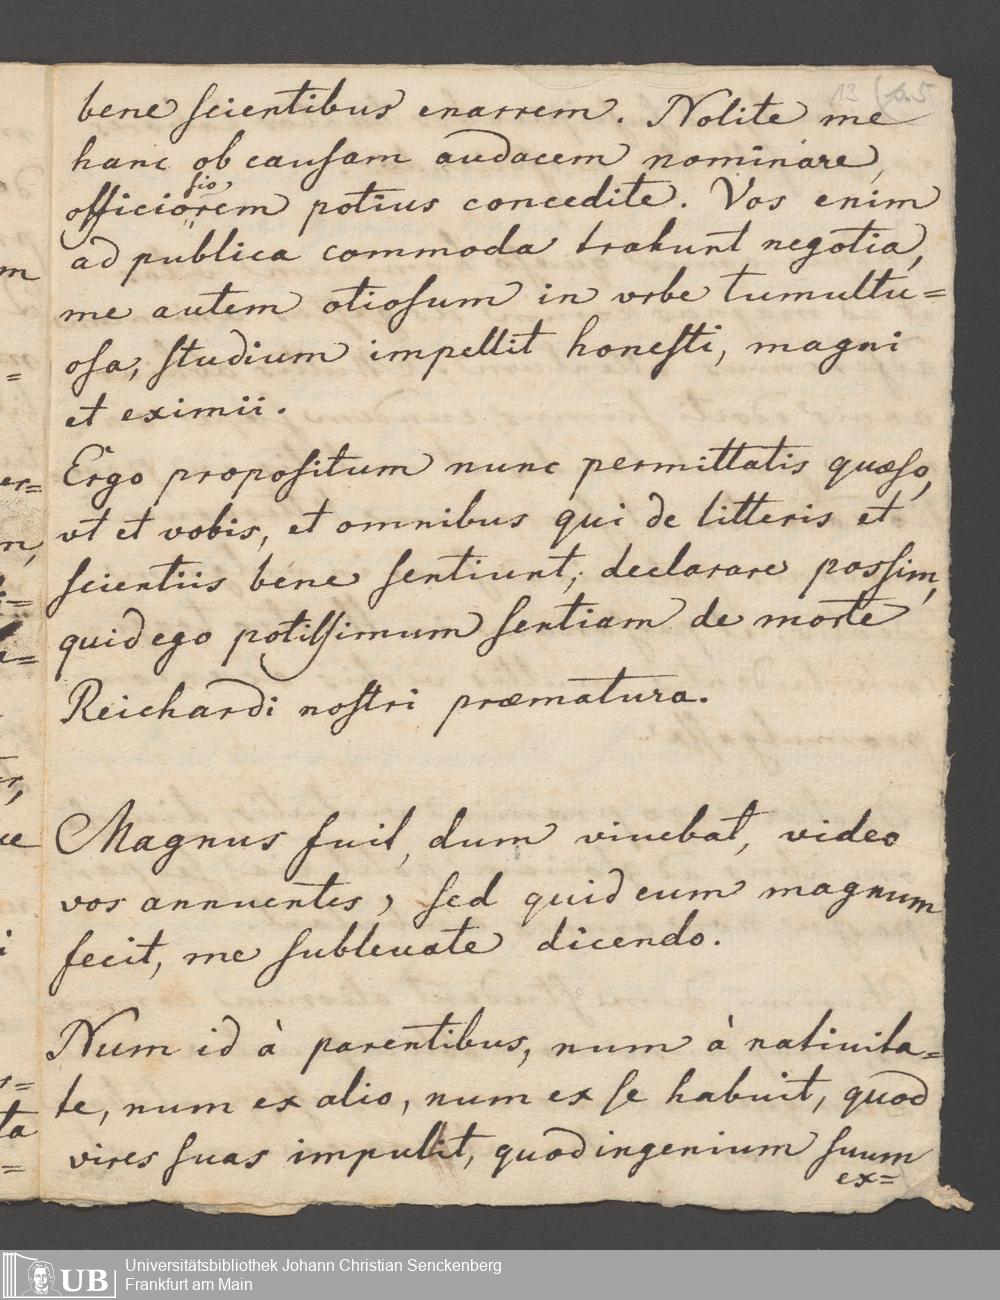 13 (p. 5
bene scientibus enarrem. Nolite me
hanc ob causam audacem nominare,
sio
officiorem potius concedite. Vos enim
ad publica commoda trahunt negotia,
me autem otiosum in urbe tumultu=
osa, studium impellit honesti, magni
et eximii.
Ergo propositum nunc permittatis quæso,
vt et vobis, et omnibus qui de litteris et
scientiis bene sentiunt, declarare possim,
quid ego potissimum sentiam de morte
Reichardi nostri præmatura.
Magnus fuit, dum viuebat, video
vos annuentes, sed quid eum magnum
fecit, me subleuate dicendo.
Num id à parentibus, num à natiuita=
te, num ex alio, num ex se habuit, quod
vires suas impulit, quod ingenium suum
ex=
UB
Universitätsbibliothek Johann Christian Senckenberg
Frankfurt am Main